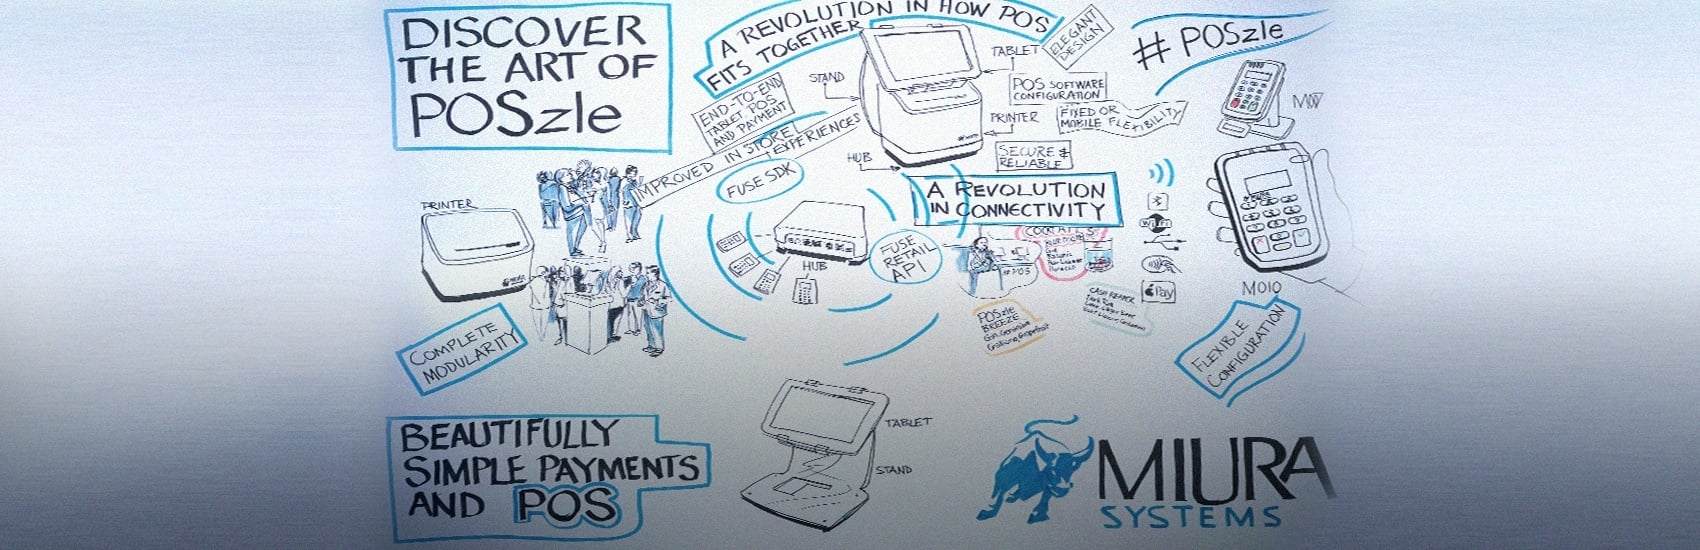 DISCOVER
THE ART OF
POSzle
A REVOLUTION IN HOW POS
FITS TOGETHER
ELEGANT
DESIGN
# POSzle
TABLET
STAND
POS SOFTWARE
CONFIGURATION
END-TO-END
TABLET POS
AND PAYMENT
PRINTER
FIXED OR
MOBILE FLEXIBILITY
IMPROVED IN STORE
EXPERIENCES
HUB
SECURE &
RELIABLE
FUSE SDK
A REVOLUTION
IN CONNECTIVITY
PRINTER
COCKTAILS
FUSE
RETAIL
API
HUB
Pay
M010
CASH REAPER
POSzle
BREEZE
COMPLETE
MODULARITY
FLEXIBLE
CONFIGURATION
BEAUTIFULLY
SIMPLE PAYMENTS
AND POS
TABLET
STAND
MIURA
SYSTEMS